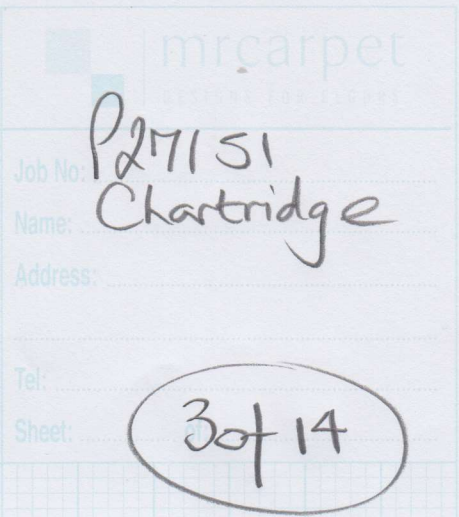 mrcarpet
DESIGNS FOR FLOORS
Job No: P27151
Name: Chartridge
Address:
Tel:
Sheet: 3 of 14